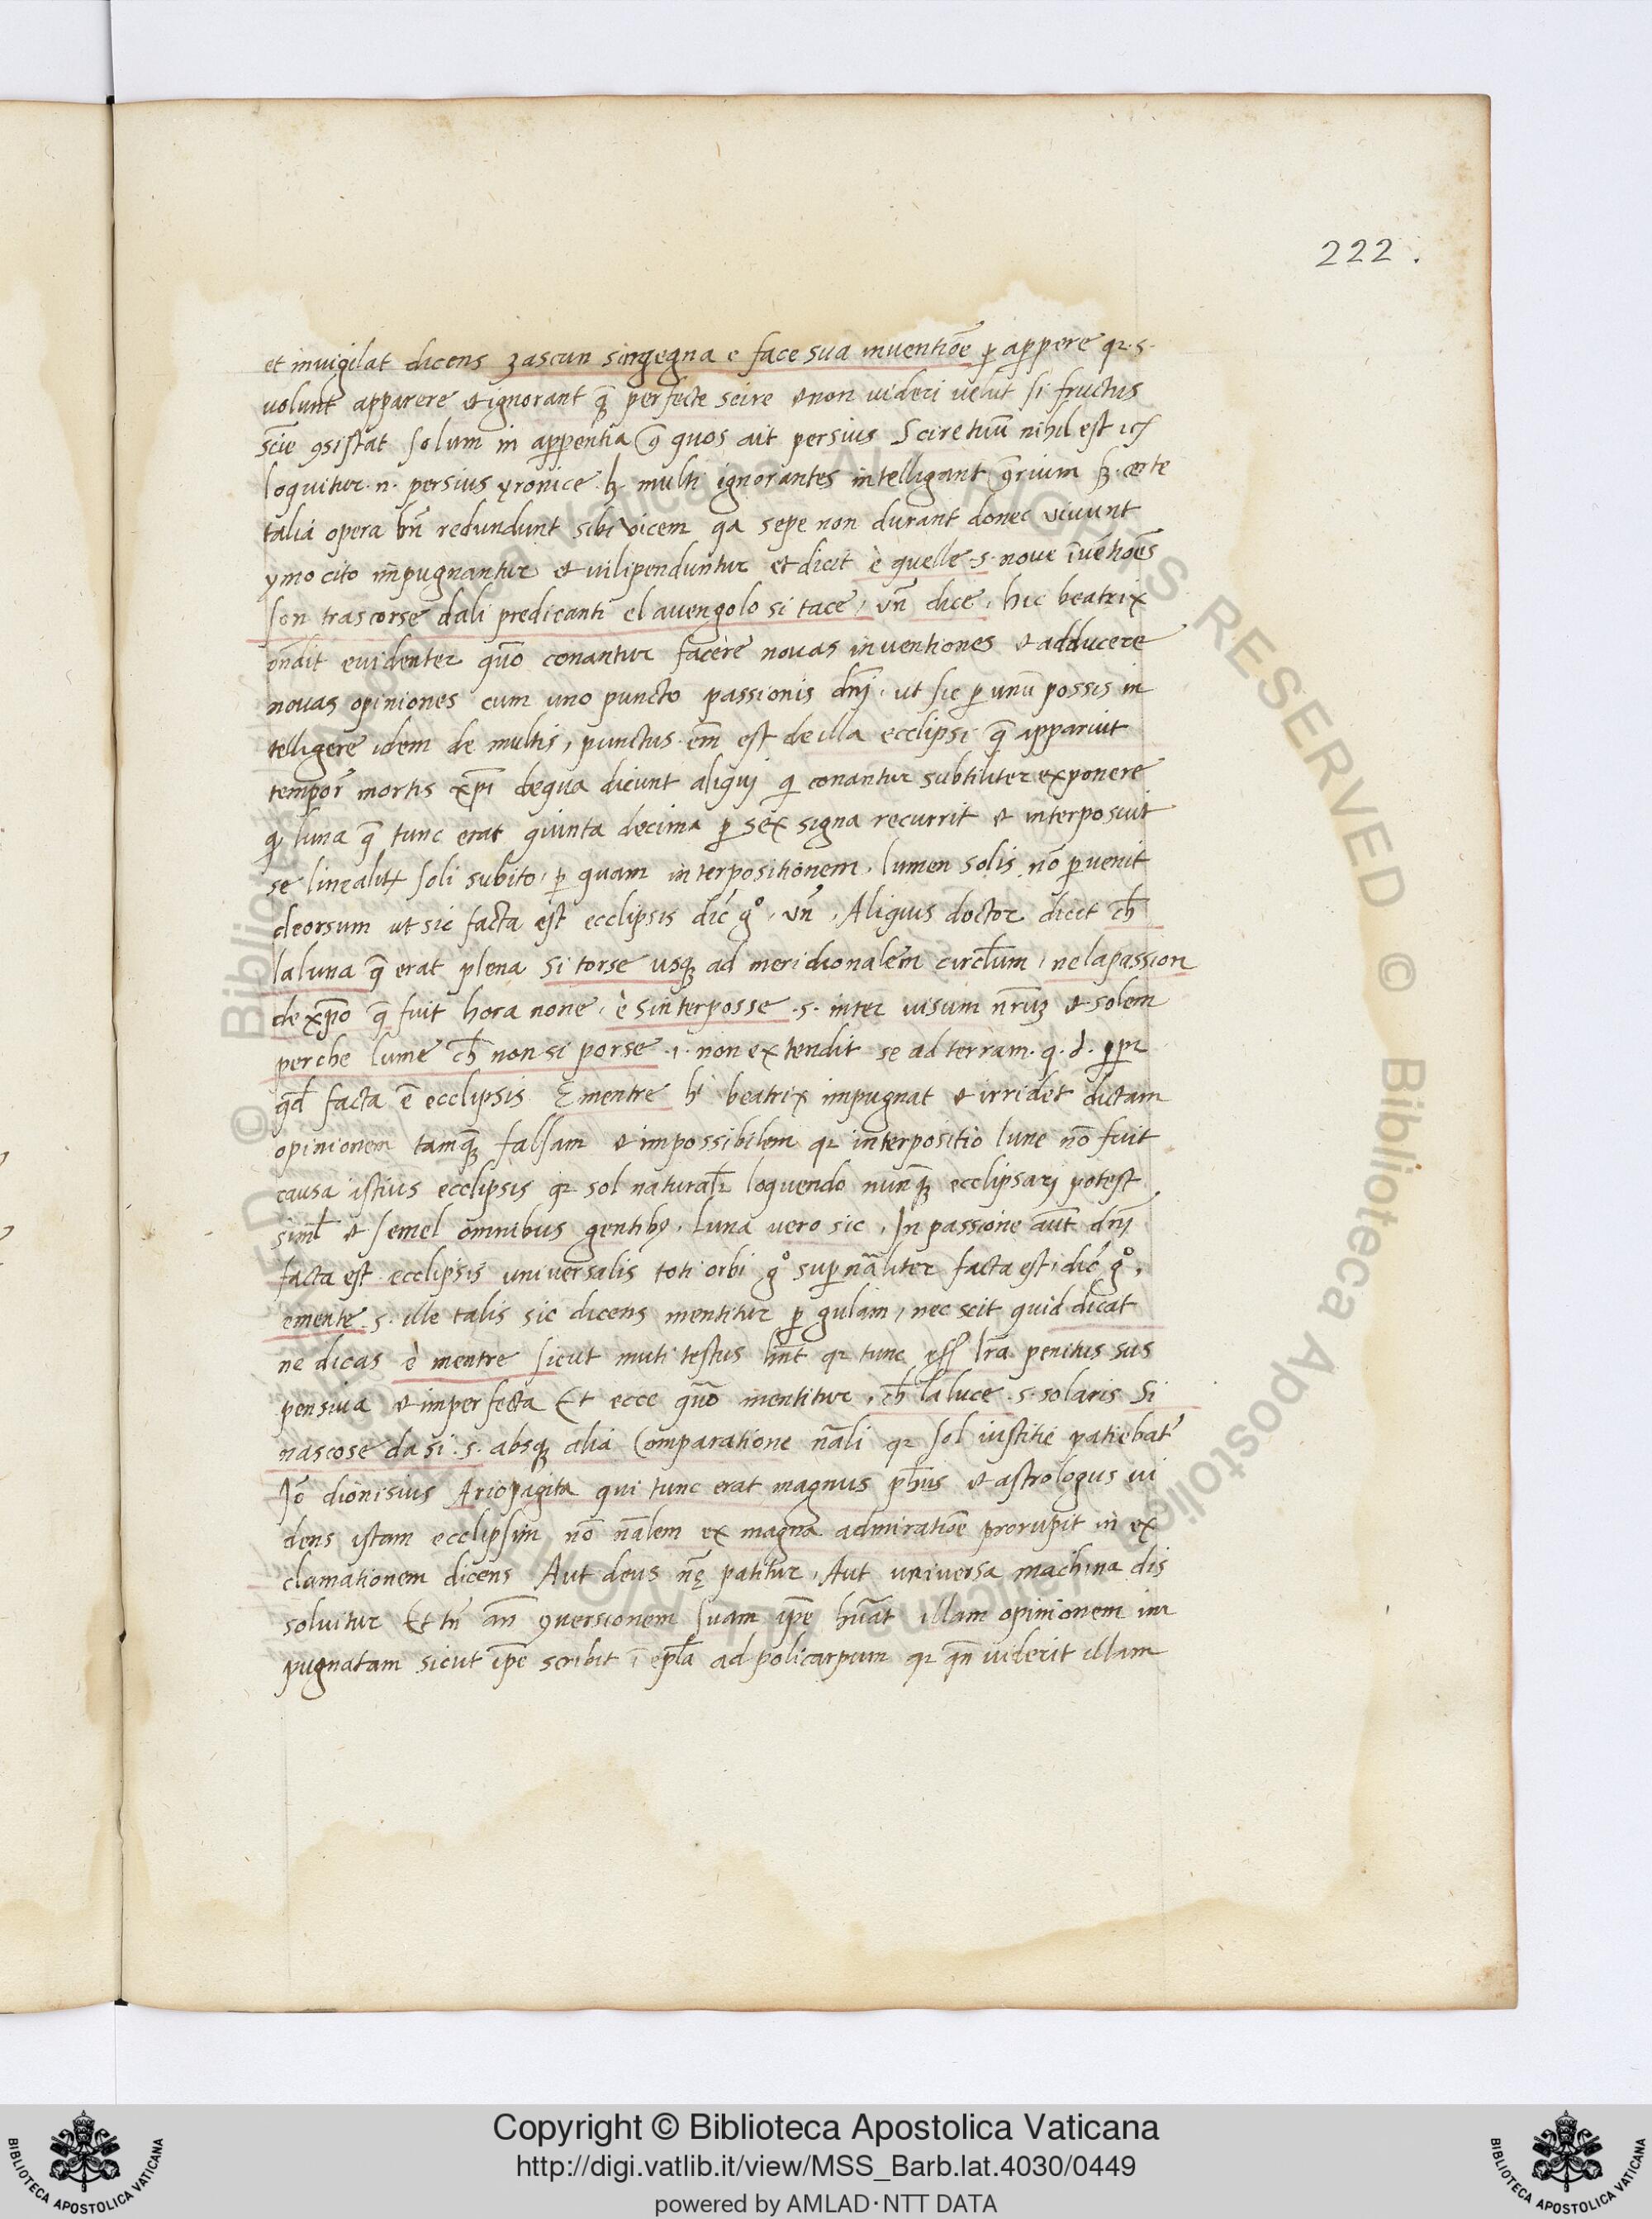 222.
et invigilat dicens zascun singegna e face sua inventiōe p appere qz .s.
volunt apparere et ignorant q̄ perfecte scire et non videri velut si fructus
scīe ꝯsistat solum in appentia ꝯ quos ait persius Scire tuū nihil est
loquitur .n. persius yronice lꝫ multi ignorantes intelligant ꝯrium sꝫ certe
talia opera bñ redundunt sibi vicem qa sepe non durant donec vivunt
ymo cito impugnantur et vilipenduntur et dicit è quelle .s. nove īvētiōes
son trascorse dali predicanti el avengolo si tace, vñ dice, hic beatrix
ōndit evidenter quō conantur facere novas inventiones et adducere
novas opiniones cum uno puncto passionis dñj, ut sic p unū possis in
telligere idem de multis, punctus em̄ est de illa ecclipsi q̄ apparuit
tempor̄ mortis xp̄i de qua dicunt aliquj q conantur subtiliter exponere
q luna q̄ tunc erat quinta decima p sex signa recurrit et interposuit
se linealit̄ soli subito, p quam interpositionem, lumen solis nō pvenit
deorsum ut sic facta est ecclipsis dic̄ gº, vñ, Aliquis doctor dicit ch̄
la luna q̄ erat plena si torse usqꝫ ad meridionalem circl̄um, ne la passion
de xp̄o q̄ fuit hora none, è sinterposse .s. inter visum nr̄uꝫ et solem
perche lume ch̄ non si porse .i. non extendit se ad terram. q. d.
qd̄ facta ē ecclipsis E mentre hi beatrix impugnat et irridet dictam
opinionem tamqꝫ falsam et impossibilem qz interpositio lune nō fuit
causa istius ecclipsis qz sol natural̄r loquendo nunqꝫ ecclipsarj potest
siml̄ et semel omnibus gentibꝫ, luna vero sic, In passione aūt dñj
facta est ecclipsis universalis toti orbi gº sup nāliter facta est, dic̄ gº,
emente .s. ille talis sic dicens mentitur p gulam, nec scit quid dicat
ne dicas è mentre sicut mutj testus hn̄t qz tunc lr̄a penitus sus
pensiva et imperfecta Et ecce quō mentitur, ch̄ la luce .s. solaris Si
nascose da si .s. absqꝫ alia Comparatione nālj qz sol iustitie patiebat̄
Iō dionisius Ariopagita qui tunc erat magnus ph̄us et astrologus vi
dens istam ecclipsim nō nālem ex magna admiratiōe prorupit in ex
clamationem dicens Aut deus nę patitur, Aut universa machina dis
soluitur Et tn̄ an̄ ꝯversionem suam ipē hūat illam opinionem im
pugnatam sicut ipē scribit ī epl̄a ad policarpum qz qn̄ viderit illam
Copyright © Biblioteca Apostolica Vaticana
http://digi.vatlib.it/view/MSS_Barb.lat.4030/0449
powered by AMLAD·NTT DATA
BIBLIOTECA APOSTOLICA VATICANA
BIBLIOTECA APOSTOLICA VATICANA